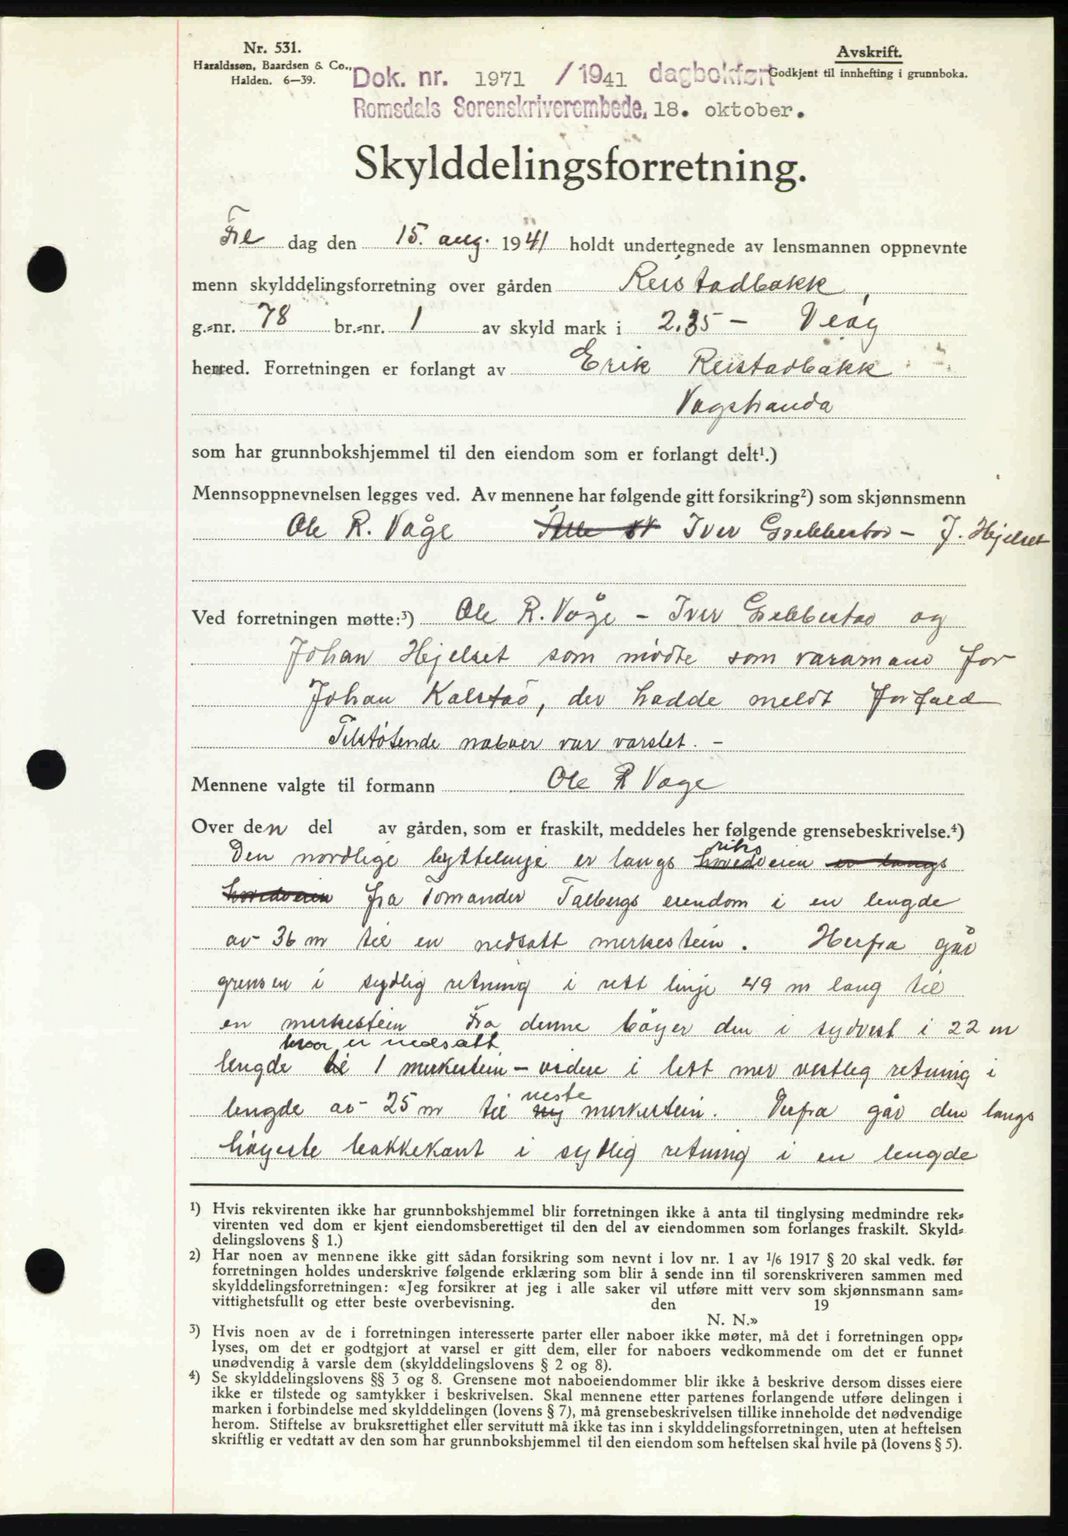 Nr. 531.
Haraldssøn, Baardsen & Co.,
Halden. 6—39.
Avskrift.
Godkjent til innhefting i grunnboka.
Dok. nr. 1971 /1941 dagbokført
Romsdals Sorenskriverembede, 18. oktober.
Skylddelingsforretning.
Fre dag den 15. aug. 1941 holdt undertegnede av lensmannen oppnevnte
menn skylddelingsforretning over gården Reistadbakk,
g.-nr. 78 br.-nr. 1 av skyld mark i 2.35 — Veøy
herred. Forretningen er forlangt av Erik Reistadbakk
Vågstranda
som har grunnbokshjemmel til den eiendom som er forlangt delt¹.)
Mennsoppnevnelsen legges ved. Av mennene har følgende gitt forsikring²) som skjønnsmenn
Ole R. Våge Iver Grebbestad — J. Hjelset
Ved forretningen møtte:³) Ole R. Våge — Iver Grebbestad og
Johan Hjelset som mødte som varamand for
Johan Kalstad, der hadde meldt forfald
Tilstøtende naboer var varslet. —
Mennene valgte til formann Ole R Våge
Over den del av gården, som er fraskilt, meddeles her følgende grensebeskrivelse.⁴)
Den nordlige byttelinje er langs riks hovedveien er langs
hovedveien fra Tomander Talbergs eiendom i en lengde
av 36 m til en nedsatt merkestein. Herfra går
grensen i sydlig retning i rett linje 49 m lang til
en merkestein Fra denne bøyer den i sydvest i 22 m
hvor er nedsatt
lengde til 1 merkestein — videre i lett mer vestleg retning i
lengde av 25 m til neste ny merkestein. Derfra går den langs
høgeste bakkekant i sydlig retning i en lengde
¹) Hvis rekvirenten ikke har grunnbokshjemmel blir forretningen ikke å anta til tinglysing medmindre rek-
virenten ved dom er kjent eiendomsberettiget til den del av eiendommen som forlanges fraskilt. Skyld-
delingslovens § 1.)
²) Har noen av mennene ikke gitt sådan forsikring som nevnt i lov nr. 1 av 1/6 1917 § 20 skal vedk. før
forretningen holdes underskrive følgende erklæring som blir å sende inn til sorenskriveren sammen med
skylddelingsforretningen: «Jeg forsikrer at jeg i alle saker vil utføre mitt verv som skjønnsmann sam-
vittighetsfullt og etter beste overbevisning. den 19
N. N.»
³) Hvis noen av de i forretningen interesserte parter eller naboer ikke møter, må det i forretningen opp-
lyses, om det er godtgjort at varsel er gitt dem, eller for naboers vedkommende om det er funnet
unødvendig å varsle dem (skylddelingslovens § 2 og 8).
⁴) Se skylddelingslovens §§ 3 og 8. Grensene mot naboeiendommer blir ikke å beskrive dersom disses eiere
ikke er tilstede og samtykker i beskrivelsen. Skal mennene etter partenes forlangende utføre delingen i
marken i forbindelse med skylddelingen (lovens § 7), må grensebeskrivelsen tillike inneholde det nødvendige
herom. Stiftelse av bruksrettighet eller servitutt må ikke tas inn i skylddelingsforretningen, uten at heftelsen
skriftlig er vedtatt av den som har grunnbokshjemmel til den eiendom som heftelsen skal hvile på (lovens § 5).